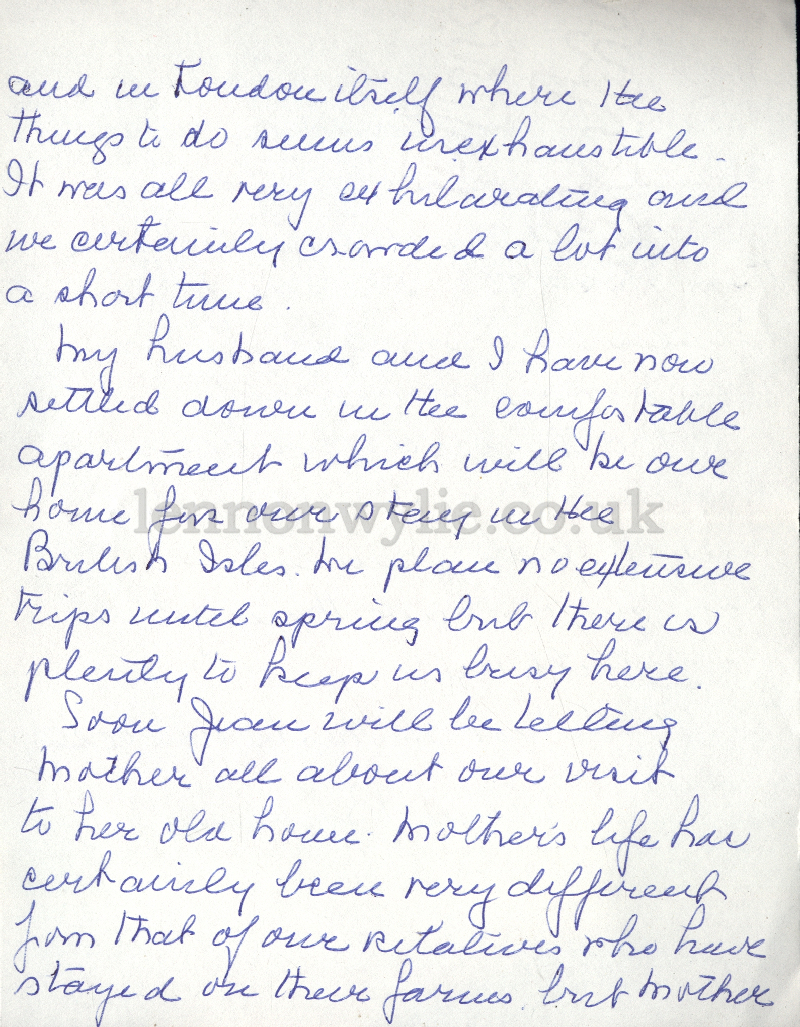 and in London itself where the
things to do seems inexhaustible.
It was all very exhilarating and
we certainly crowded a lot into
a short time.
My husband and I have now
settled down in the comfortable
apartment which will be our
home for our stay in the
lennonwylie.co.uk
British Isles. We plan no extensive
trips until spring but there is
plenty to keep us busy here.
Soon Jean will be telling
Mother all about our visit
to her old home. Mother's life has
certainly been very different
from that of our relatives who have
stayed on their farms but Mother